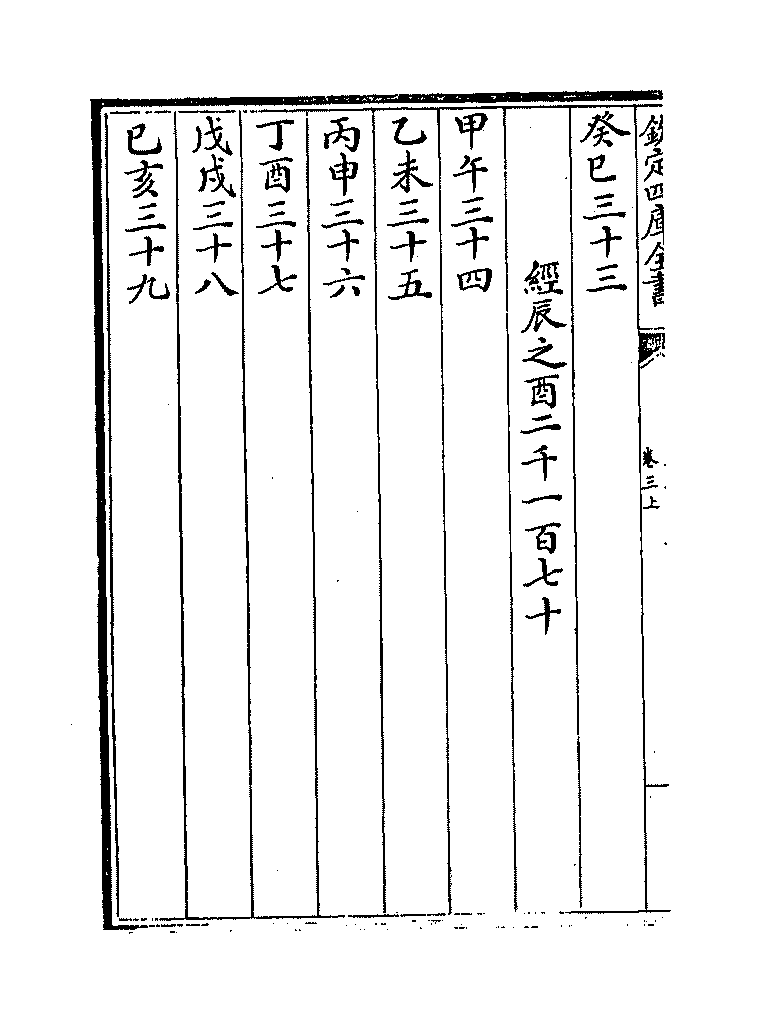 欽定四庫全書
卷三上
癸巳三十三
經辰之酉二千一百七十
甲午三十四
乙未三十五
丙申三十六
丁酉三十七
戊戌三十八
己亥三十九